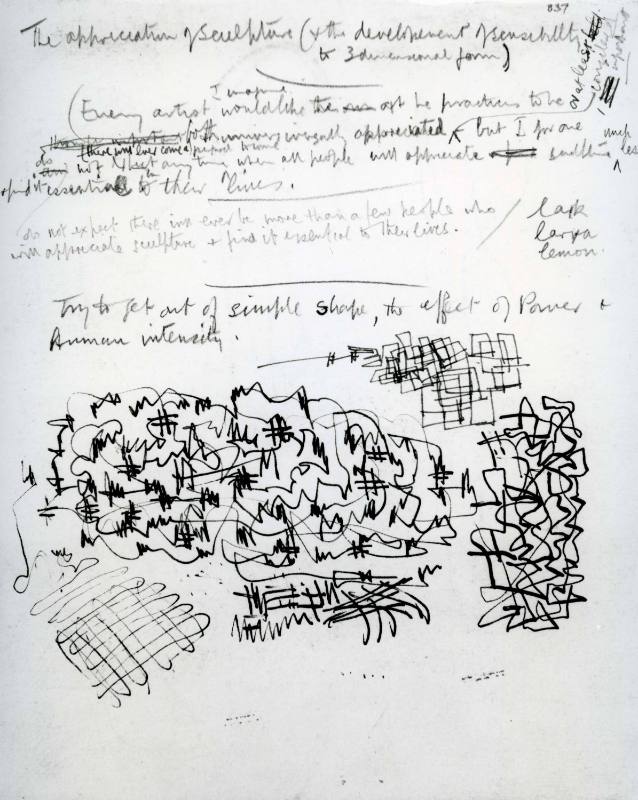 837
The appreciation of sculpture (& the developement of sensibility
to 3 dimensional form)
I imagine
(Every artist would like the art he practices to be
universally appreciated, but I for one
there will ever come a period
do not expect any time when all people will appreciate sculpture
& find it essential to their lives.
do not expect there will ever be more than a few people who
will appreciate sculpture & find it essential to their lives.
/ lark
larva
lemon.
Try to get out of simple shape, the effect of Power &
human intensity.